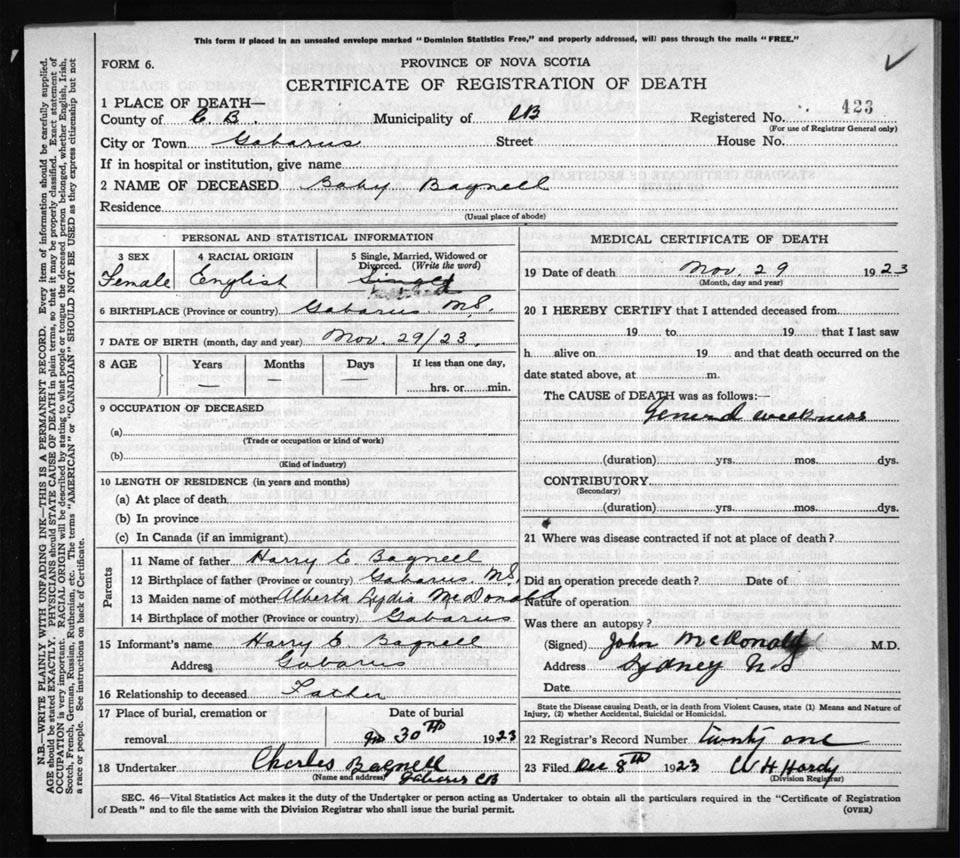 This form if placed in an unsealed envelope marked "Dominion Statistics Free," and properly addressed, will pass through the mails "FREE."
FORM 6.
PROVINCE OF NOVA SCOTIA
CERTIFICATE OF REGISTRATION OF DEATH
1 PLACE OF DEATH—
County of C B. Municipality of CB Registered No. 423
(For use of Registrar General only)
City or Town Gabarus Street House No.
If in hospital or institution, give name
2 NAME OF DECEASED Baby Bagnell
Residence
(Usual place of abode)
PERSONAL AND STATISTICAL INFORMATION
3 SEX 4 RACIAL ORIGIN 5 Single, Married, Widowed or Divorced. (Write the word)
Female English Single
6 BIRTHPLACE (Province or country) Gabarus N.S.
7 DATE OF BIRTH (month, day and year) Nov. 29/23.
8 AGE Years Months Days If less than one day,
— — — hrs. or min.
9 OCCUPATION OF DECEASED
(a)
(Trade or occupation or kind of work)
(b)
(Kind of industry)
10 LENGTH OF RESIDENCE (in years and months)
(a) At place of death
(b) In province
(c) In Canada (if an immigrant)
Parents
11 Name of father Harry E Bagnell
12 Birthplace of father (Province or country) Gabarus. N.S.
13 Maiden name of mother Alberta Lydia McDonald
14 Birthplace of mother (Province or country) Gabarus
15 Informant's name Harry E Bagnell
Address Gabarus
16 Relationship to deceased Father
17 Place of burial, cremation or Date of burial
removal 30th 1923
18 Undertaker Charles Bagnell
(Name and address) Gabarus CB
MEDICAL CERTIFICATE OF DEATH
19 Date of death Nov. 29 1923
(Month, day and year)
20 I HEREBY CERTIFY that I attended deceased from
19 to 19 that I last saw
h alive on 19 and that death occurred on the
date stated above, at m.
The CAUSE of DEATH was as follows:—
General weakness
(duration) yrs. mos. dys.
CONTRIBUTORY
(Secondary)
(duration) yrs. mos. dys.
21 Where was disease contracted if not at place of death?
Did an operation precede death? Date of
Nature of operation
Was there an autopsy?
(Signed) John McDonald M.D.
Address Sydney N.S
Date
State the Disease causing Death, or in death from Violent Causes, state (1) Means and Nature of
Injury, (2) whether Accidental, Suicidal or Homicidal.
22 Registrar's Record Number twenty one
23 Filed Dec 8th 1923 W H Hardy
(Division Registrar)
SEC. 46—Vital Statistics Act makes it the duty of the Undertaker or person acting as Undertaker to obtain all the particulars required in the "Certificate of Registration
of Death" and to file the same with the Division Registrar who shall issue the burial permit. (OVER)
N.B.—WRITE PLAINLY WITH UNFADING INK—THIS IS A PERMANENT RECORD. Every item of information should be carefully supplied.
AGE should be stated EXACTLY. PHYSICIANS should STATE CAUSE OF DEATH in plain terms, so that it may be properly classified. Exact statement of
OCCUPATION is very important. RACIAL ORIGIN will be described by stating to what people or tongue the deceased person belonged, whether English, Irish,
Scotch, French, German, Russian, Ruthenian, etc. The terms "AMERICAN" or "CANADIAN" SHOULD NOT BE USED as they express citizenship but not
a race or people. See instructions on back of Certificate.